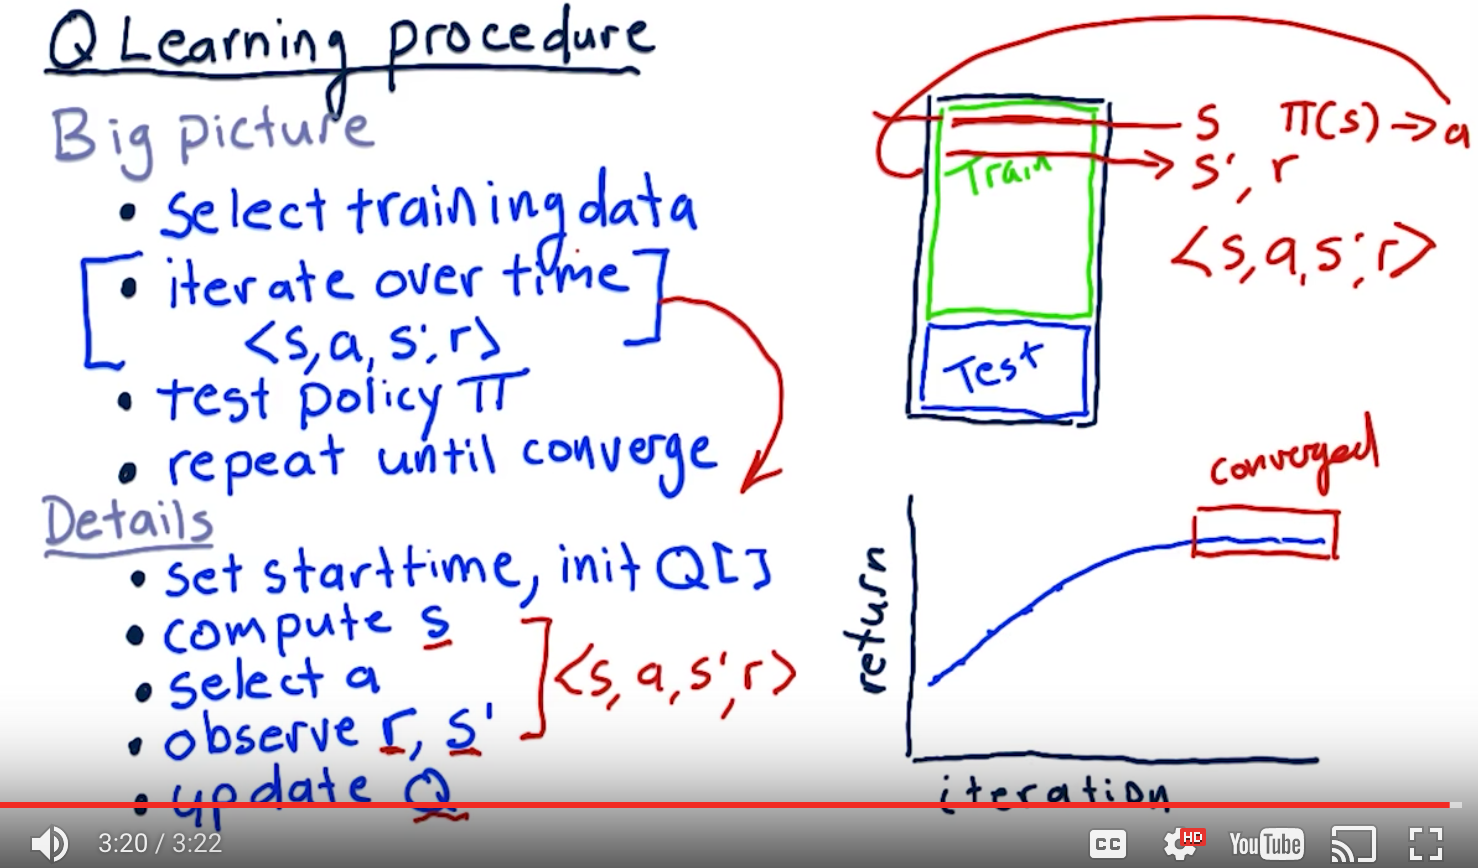 Q Learning procedure
Big picture
• select training data
• iterate over time
<s, a, s', r>
• test policy π
• repeat until converge
Details
• set starttime, init Q[]
• compute s
• select a
• observe r, s'
• update Q
<s, a, s', r>
Train
Test
s π(s) → a
s', r
<s, a, s', r>
converged
return
iteration
3:20 / 3:22
CC
HD
YouTube